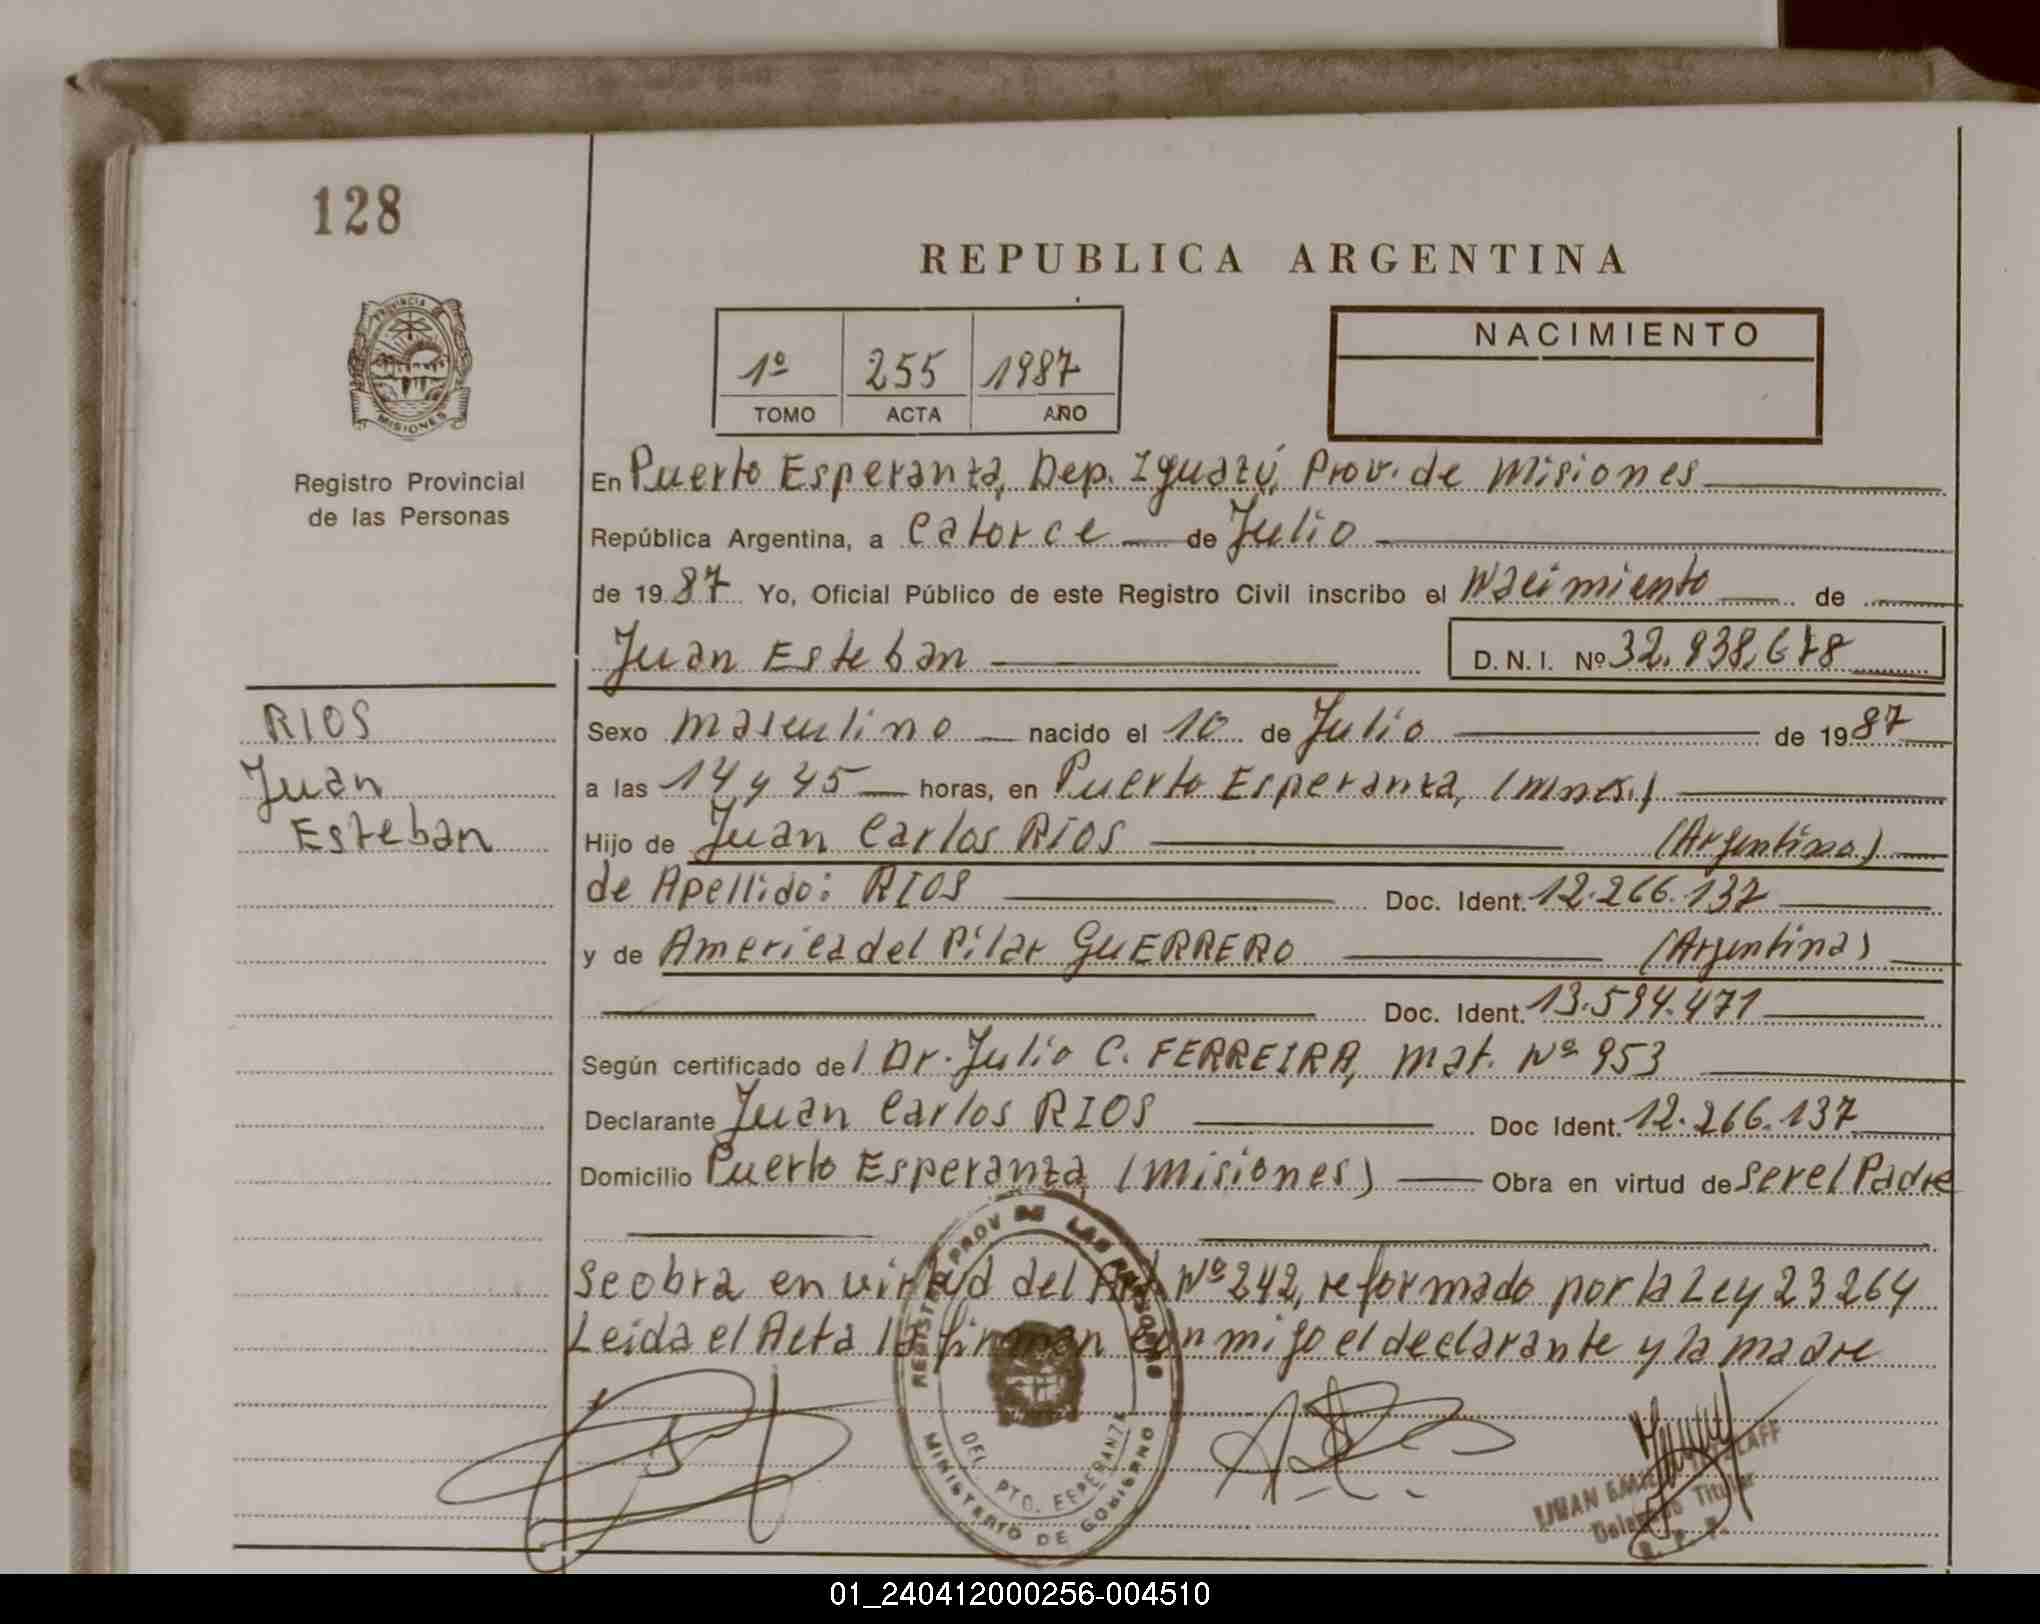 128
REPUBLICA ARGENTINA
PROVINCIA
MISIONES
NACIMIENTO
1º 255 1987
TOMO ACTA AÑO
Registro Provincial
de las Personas
En Puerto Esperanza, Dep. Iguazú, Prov. de Misiones
República Argentina, a Catorce de Julio
de 1987 Yo, Oficial Público de este Registro Civil inscribo el Nacimiento de
Juan Esteban D.N.I. Nº 32.938.678
RIOS
Juan
Esteban
Sexo masculino nacido el 10 de Julio de 1987
a las 14 y 45 horas, en Puerto Esperanza, (Mnes.)
Hijo de Juan Carlos RIOS (Argentino)
de Apellido: RIOS Doc. Ident. 12.266.137
y de America del Pilar GUERRERO (Argentina)
Doc. Ident. 13.594.471
Según certificado del Dr. Julio C. FERREIRA, Mat. Nº 953
Declarante Juan Carlos RIOS Doc Ident. 12.266.137
Domicilio Puerto Esperanza (Misiones) Obra en virtud de ser el Padre
Se obra en virtud del Art. Nº 242, reformado por la Ley 23264
Leida el Acta la firman conmigo el declarante y la madre
REGISTRO PROV DE LAS PERSONAS
DEL. PTO. ESPERANZA
MINISTERIO DE GOBIERNO
Delegado Titular
01_240412000256-004510